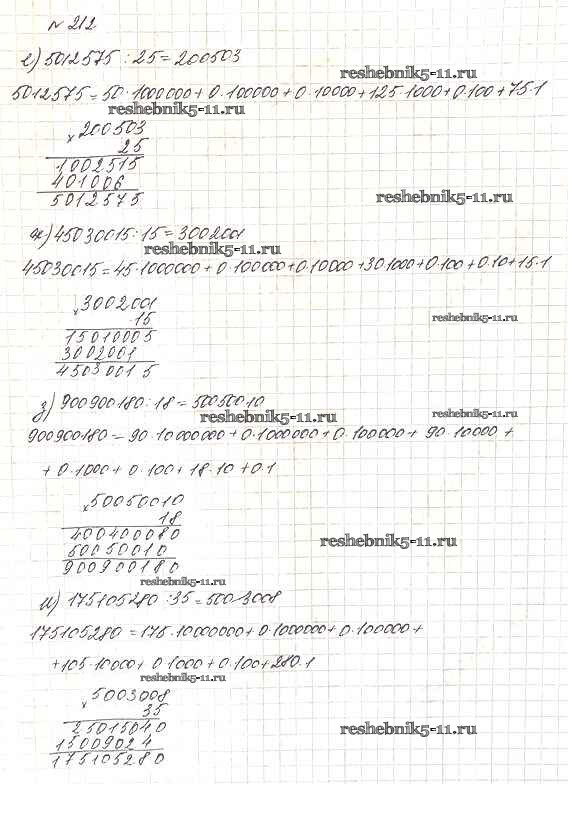 № 212
е) 5012575 : 25 = 200503
reshebnik5-11.ru
5012575 = 50·1000000 + 0·100000 + 0·10000 + 125·1000 + 0·100 + 75·1
reshebnik5-11.ru
× 200503
25
1002515
401006
5012575
reshebnik5-11.ru
ж) 45030015 : 15 = 3002001
reshebnik5-11.ru
45030015 = 45·1000000 + 0·100000 + 0·10000 + 30·1000 + 0·100 + 0·10 + 15·1
× 3002001
15
reshebnik5-11.ru
15010005
3002001
45030015
з) 900900180 : 18 = 50050010
reshebnik5-11.ru
reshebnik5-11.ru
900900180 = 90·10000000 + 0·1000000 + 0·100000 + 90·10000 +
+ 0·1000 + 0·100 + 18·10 + 0·1
× 50050010
18
400400080
50050010
900900180
reshebnik5-11.ru
reshebnik5-11.ru
и) 175105280 : 35 = 5003008
175105280 = 175·10000000 + 0·1000000 + 0·100000 +
+ 105·10000 + 0·1000 + 0·100 + 280·1
reshebnik5-11.ru
× 5003008
35
25015040
15009024
175105280
reshebnik5-11.ru